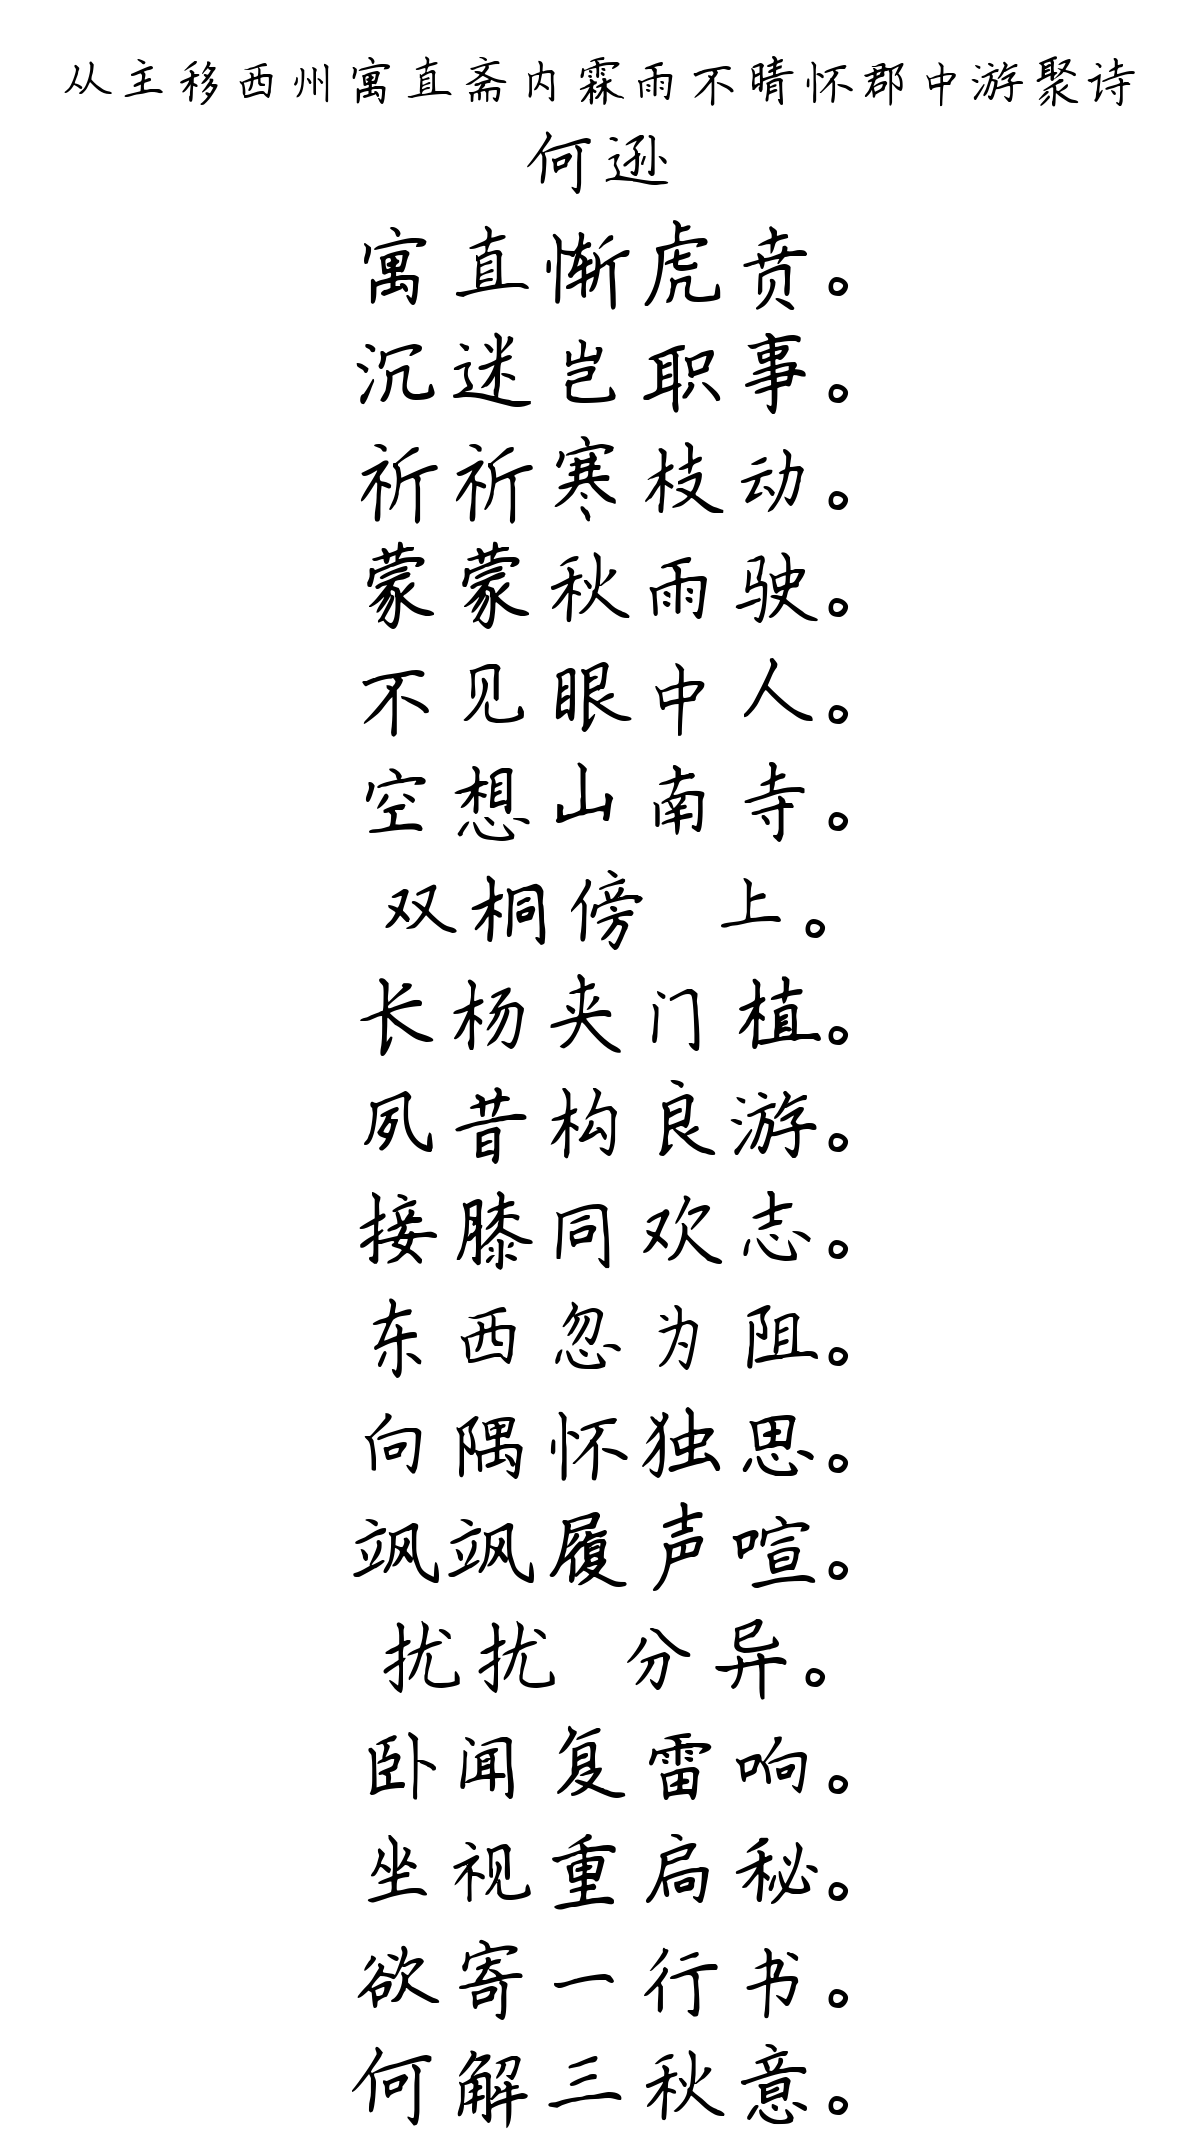 从主移西州寓直斋内霖雨不晴怀郡中游聚诗
何逊
寓直惭虎贲。
沉迷岂职事。
祈祈寒枝动。
蒙蒙秋雨驶。
不见眼中人。
空想山南寺。
双桐傍 上。
长杨夹门植。
夙昔构良游。
接膝同欢志。
东西忽为阻。
向隅怀独思。
飒飒履声喧。
扰扰 分异。
卧闻复雷响。
坐视重扃秘。
欲寄一行书。
何解三秋意。